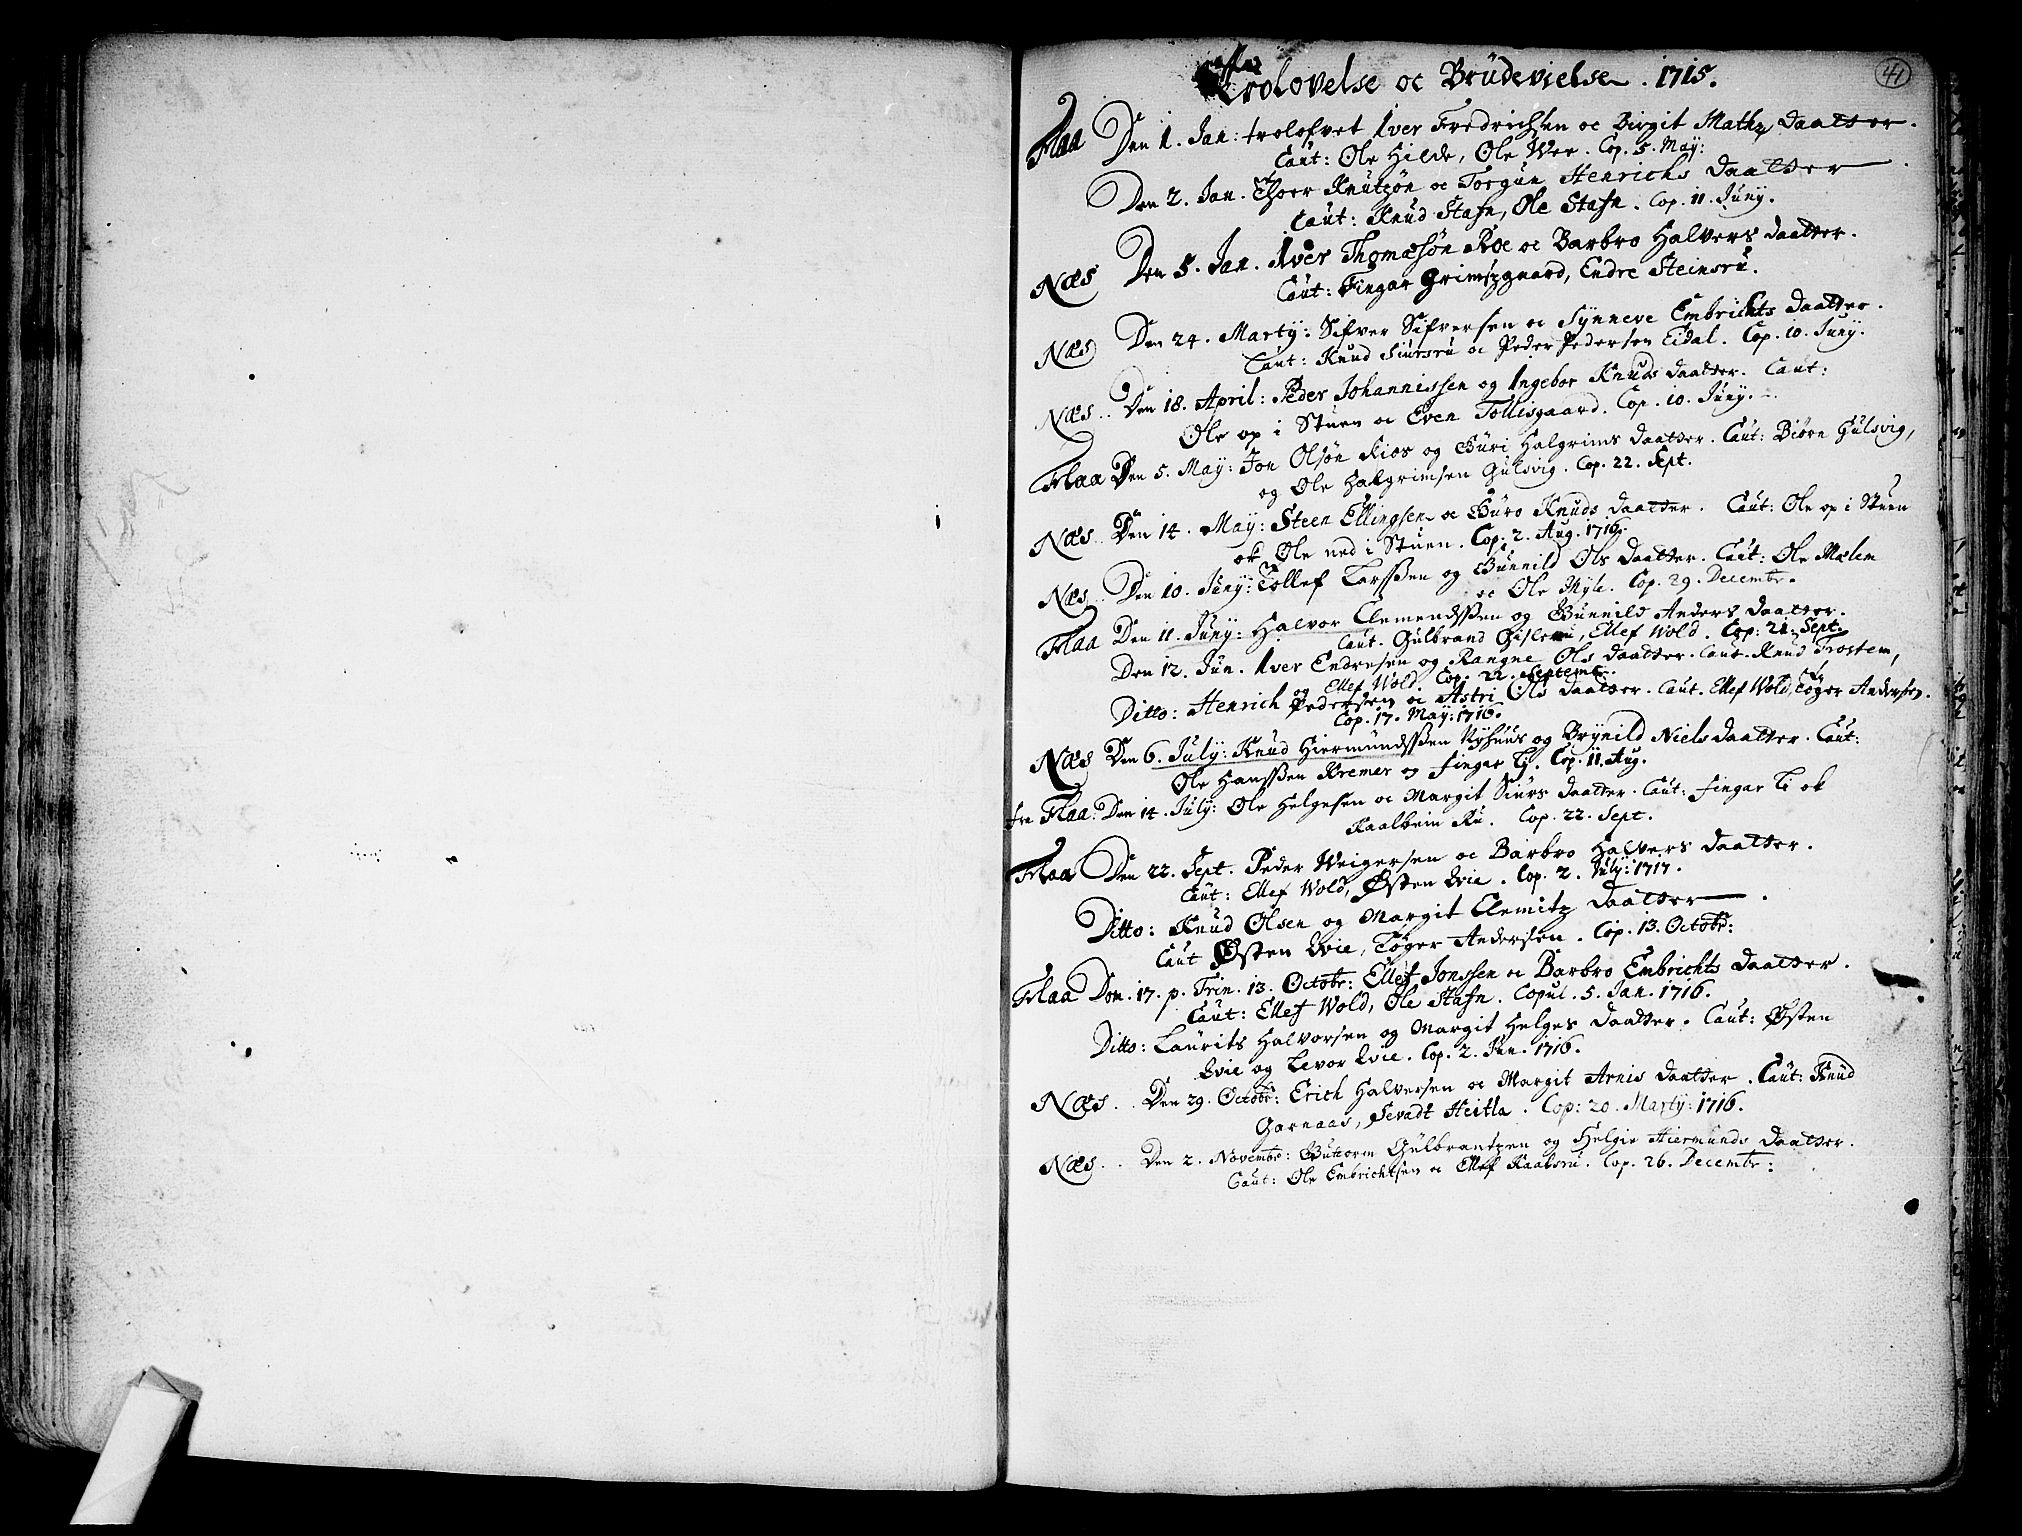 41
Trolovelse oc Brüdevielse. 1715.
Flaa Den 1. Jan: trolofvet Iver Fredrichsen oc Birgit Mathz daatter.
Caut: Ole Hilde, Ole Wer. Cop. 5. May:
Den 2. Jan. Thoer Knutzøn oc Torgun Henrichs daatter
Caut: Knud Stafn, Ole Stafn. Cop. 11. Juny.
Næs Den 5. Jan. Iver Thomæsøn Roe oc Barbro Halvers daatter.
Caut: Fingar Grimszgaard, Endre Steinsrü.
Næs Den 24. Marty: Sifver Sifversen oc Synneve Embrichts daatter.
Caut: Knud Siursrü oc Peder Pedersen Eidal. Cop. 10. Juny.
Næs.. Den 18. April: Peder Johannissen og Ingebor Knuds daatter. Caut:
Ole op i Stuen oc Even Tollisgaard. Cop. 10. Juny.
Flaa Den 5. May: Jon Olsøn Rios og Büri Halgrims daatter. Caut: Biørn Gulsvig,
og Ole Halgrimsen Gulsvig. Cop. 22. Sept.
Næs.. Den 14. May: Steen Ellingsen oc Büro Knuds daatter. Caut: Ole op i Stuen
ok Ole ned i Stuen. Cop. 2. Aug. 1716.
Næs.. Den 10. Juny: Tollef Larssen og Günnild Ols daatter. Caut: Ole Mælen
oc Ole Myle. Cop. 29. Decembr.
Flaa Den 11. Juny: Halvor Clemendssen og Günnild Anders daatter.
Caut. Gulbrand Gislerü, Ellef Wold. Cop: 21. Sept.
Den 12. Jun. Iver Endresen og Rangne Ols daatter. Caut. Knud Trostem,
og Ellef Wold. Cop. 22. Septemb.
Ditto: Henrich Pedersen oc Astri Ols daatter. Caut. Ellef Wold, Tøger Andersen.
Cop. 17. May: 1716.
Næs Den 6. July: Knud Hiermundssen Nyhuus og Brynild Niels daatter. Caut:
Ole Hanssen Kremer og Fingar Ly. Cop. 11. Aug.
fra Flaa: Den 14. July: Ole Helgesen oc Margit Siurs daatter. Caut: Fingar Li ok
Kaalbein Rü. Cop. 22. Sept.
Flaa Den 22. Sept. Peder Weigersen oc Barbro Halvers daatter.
Caut: Ellef Wold, Østen Qvie. Cop. 2. July: 1717.
Ditto: Knud Olsen og Margit Clemitz daatter.
Caut Østen Qvie, Tøger Andersen. Cop. 13. Octobr:
Flaa Dom. 17. p. Trin. 13. Octobr: Ellef Jonssen oc Barbro Embrichts daatter.
Caut: Ellef Wold, Ole Stafn. Copul. 5. Jan. 1716.
Ditto: Laurits Halvorsen og Margit Helges daatter. Caut: Østen
Qvie og Levor Qvie. Cop. 2. Jun. 1716.
Næs.. Den 29. Octobr: Erich Halversen oc Margit Arnis daatter. Caut: Knud
Garnaas, Sevadt Heitla. Cop: 20. Marty: 1716.
Næs.. Den 2. Novembr: Guttorm Gulbrantzen og Helgie Hiermunds daatter.
Caut: Ole Embrichtsen oc Ellef Kaalsrü. Cop. 26. Decembr: